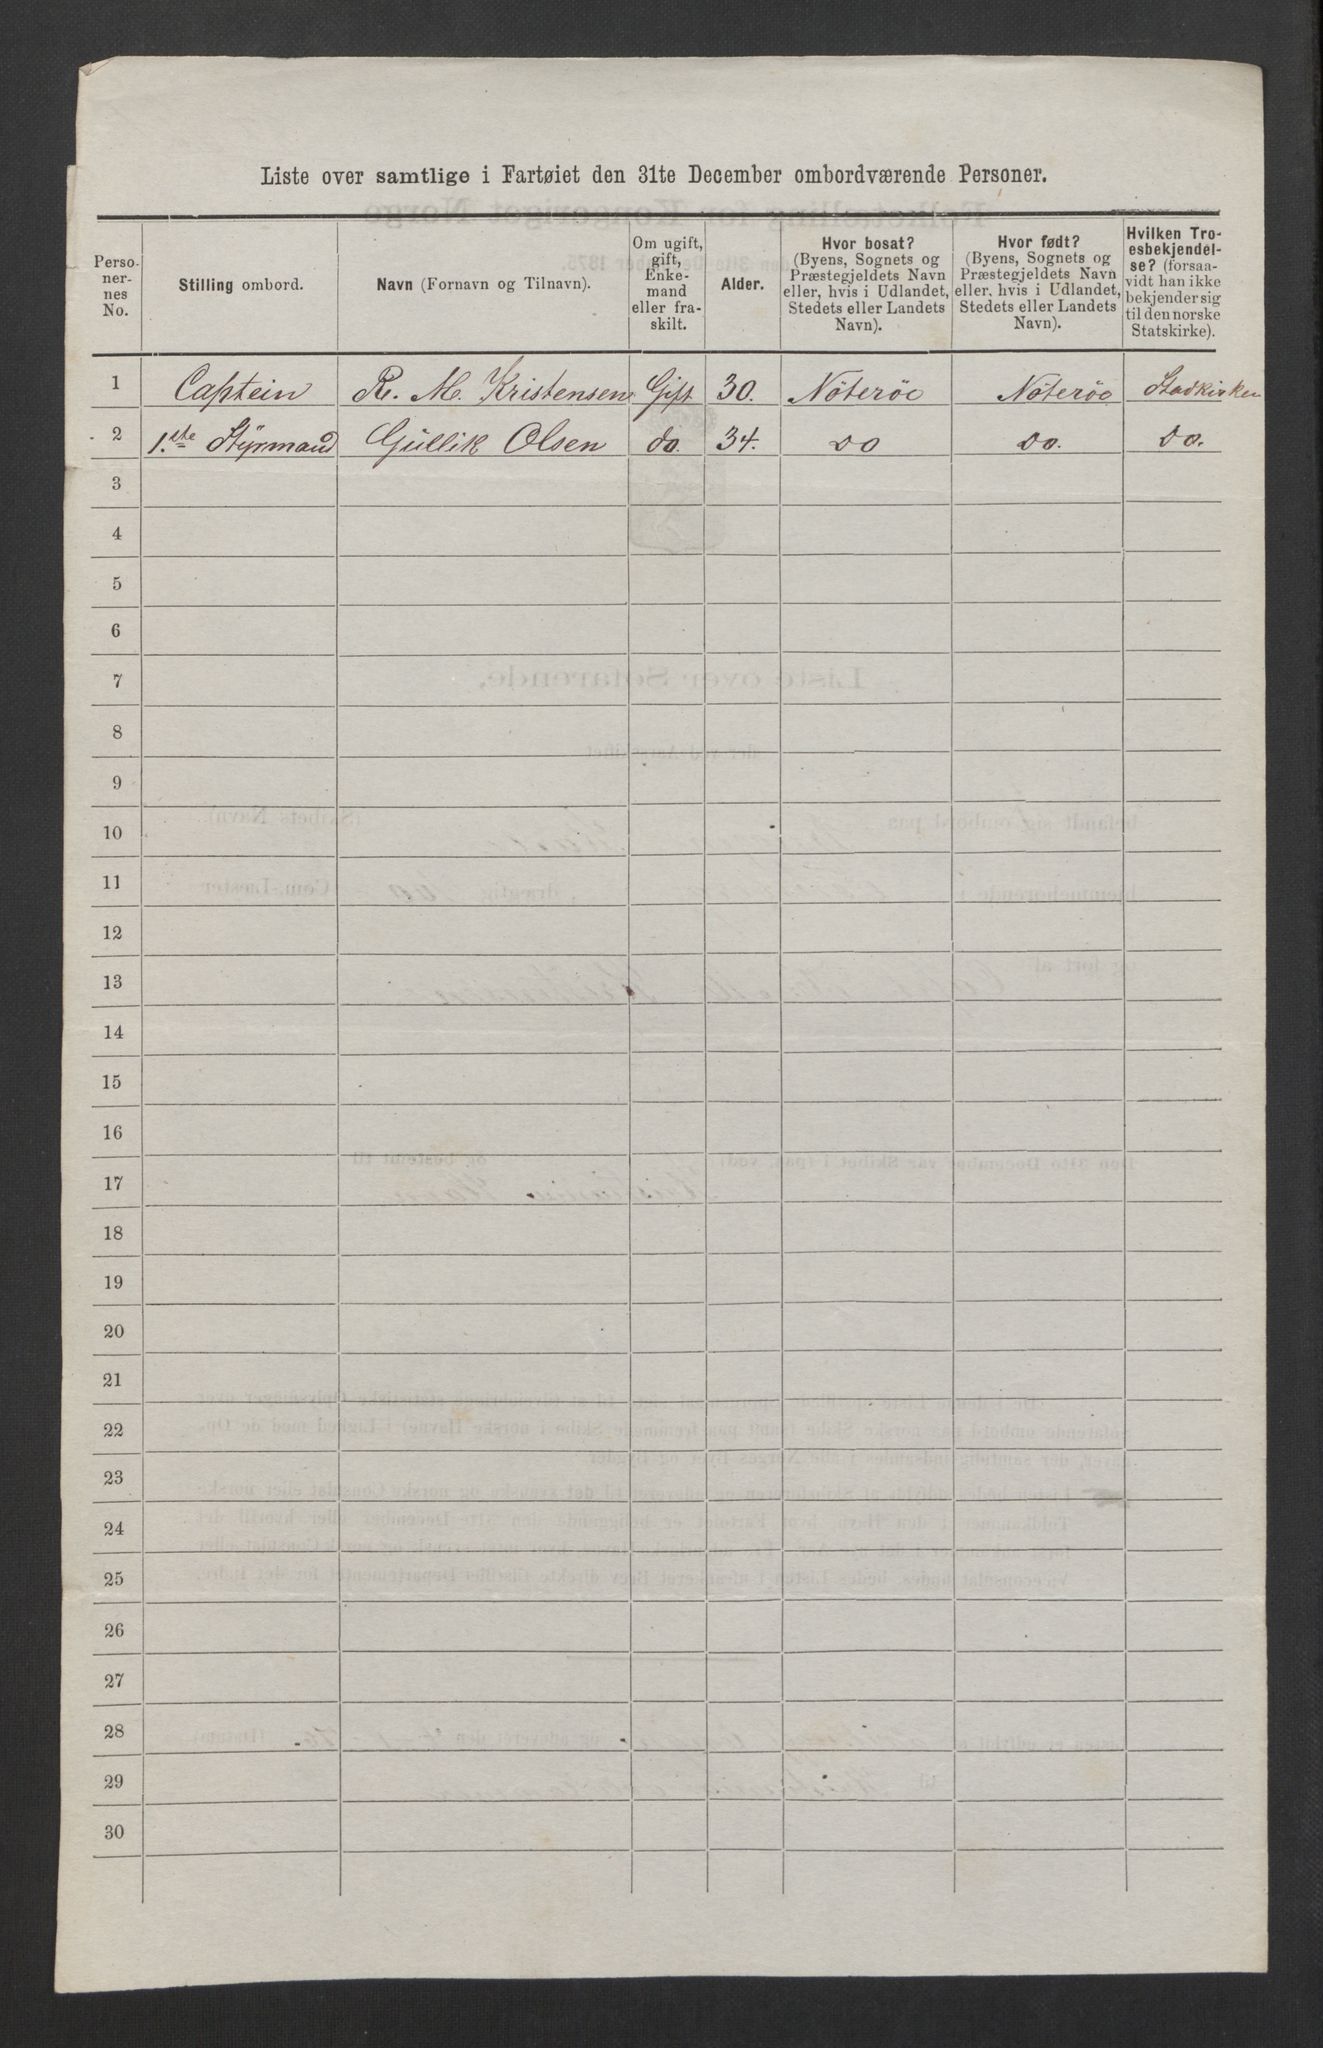 Liste over samtlige i Fartøiet den 31te December ombordværende Personer.
Perso-
ner-
nes
No.
Stilling ombord.
Navn (Fornavn og Tilnavn).
Om ugift,
gift,
Enke-
mand
eller fra-
skilt.
Alder.
Hvor bosat?
(Byens, Sognets og
Præstegjeldets Navn
eller, hvis i Udlandet,
Stedets eller Landets
Navn).
Hvor født?
(Byens, Sognets og
Præstegjeldets Navn
eller, hvis i Udlandet,
Stedets eller Landets
Navn).
Hvilken Tro-
esbekjendel-
se? (forsaa-
vidt han ikke
bekjender sig
til den norske
Statskirke).
1 Captein R. M. Kristensen Gift 30. Nöteröe Nöteröe Stadkirken
2 1.ste Styrmand Gullik Olsen do. 34. do do. do.
3
4
5
6
7
8
9
10
11
12
13
14
15
16
17
18
19
20
21
22
23
24
25
26
27
28
29
30